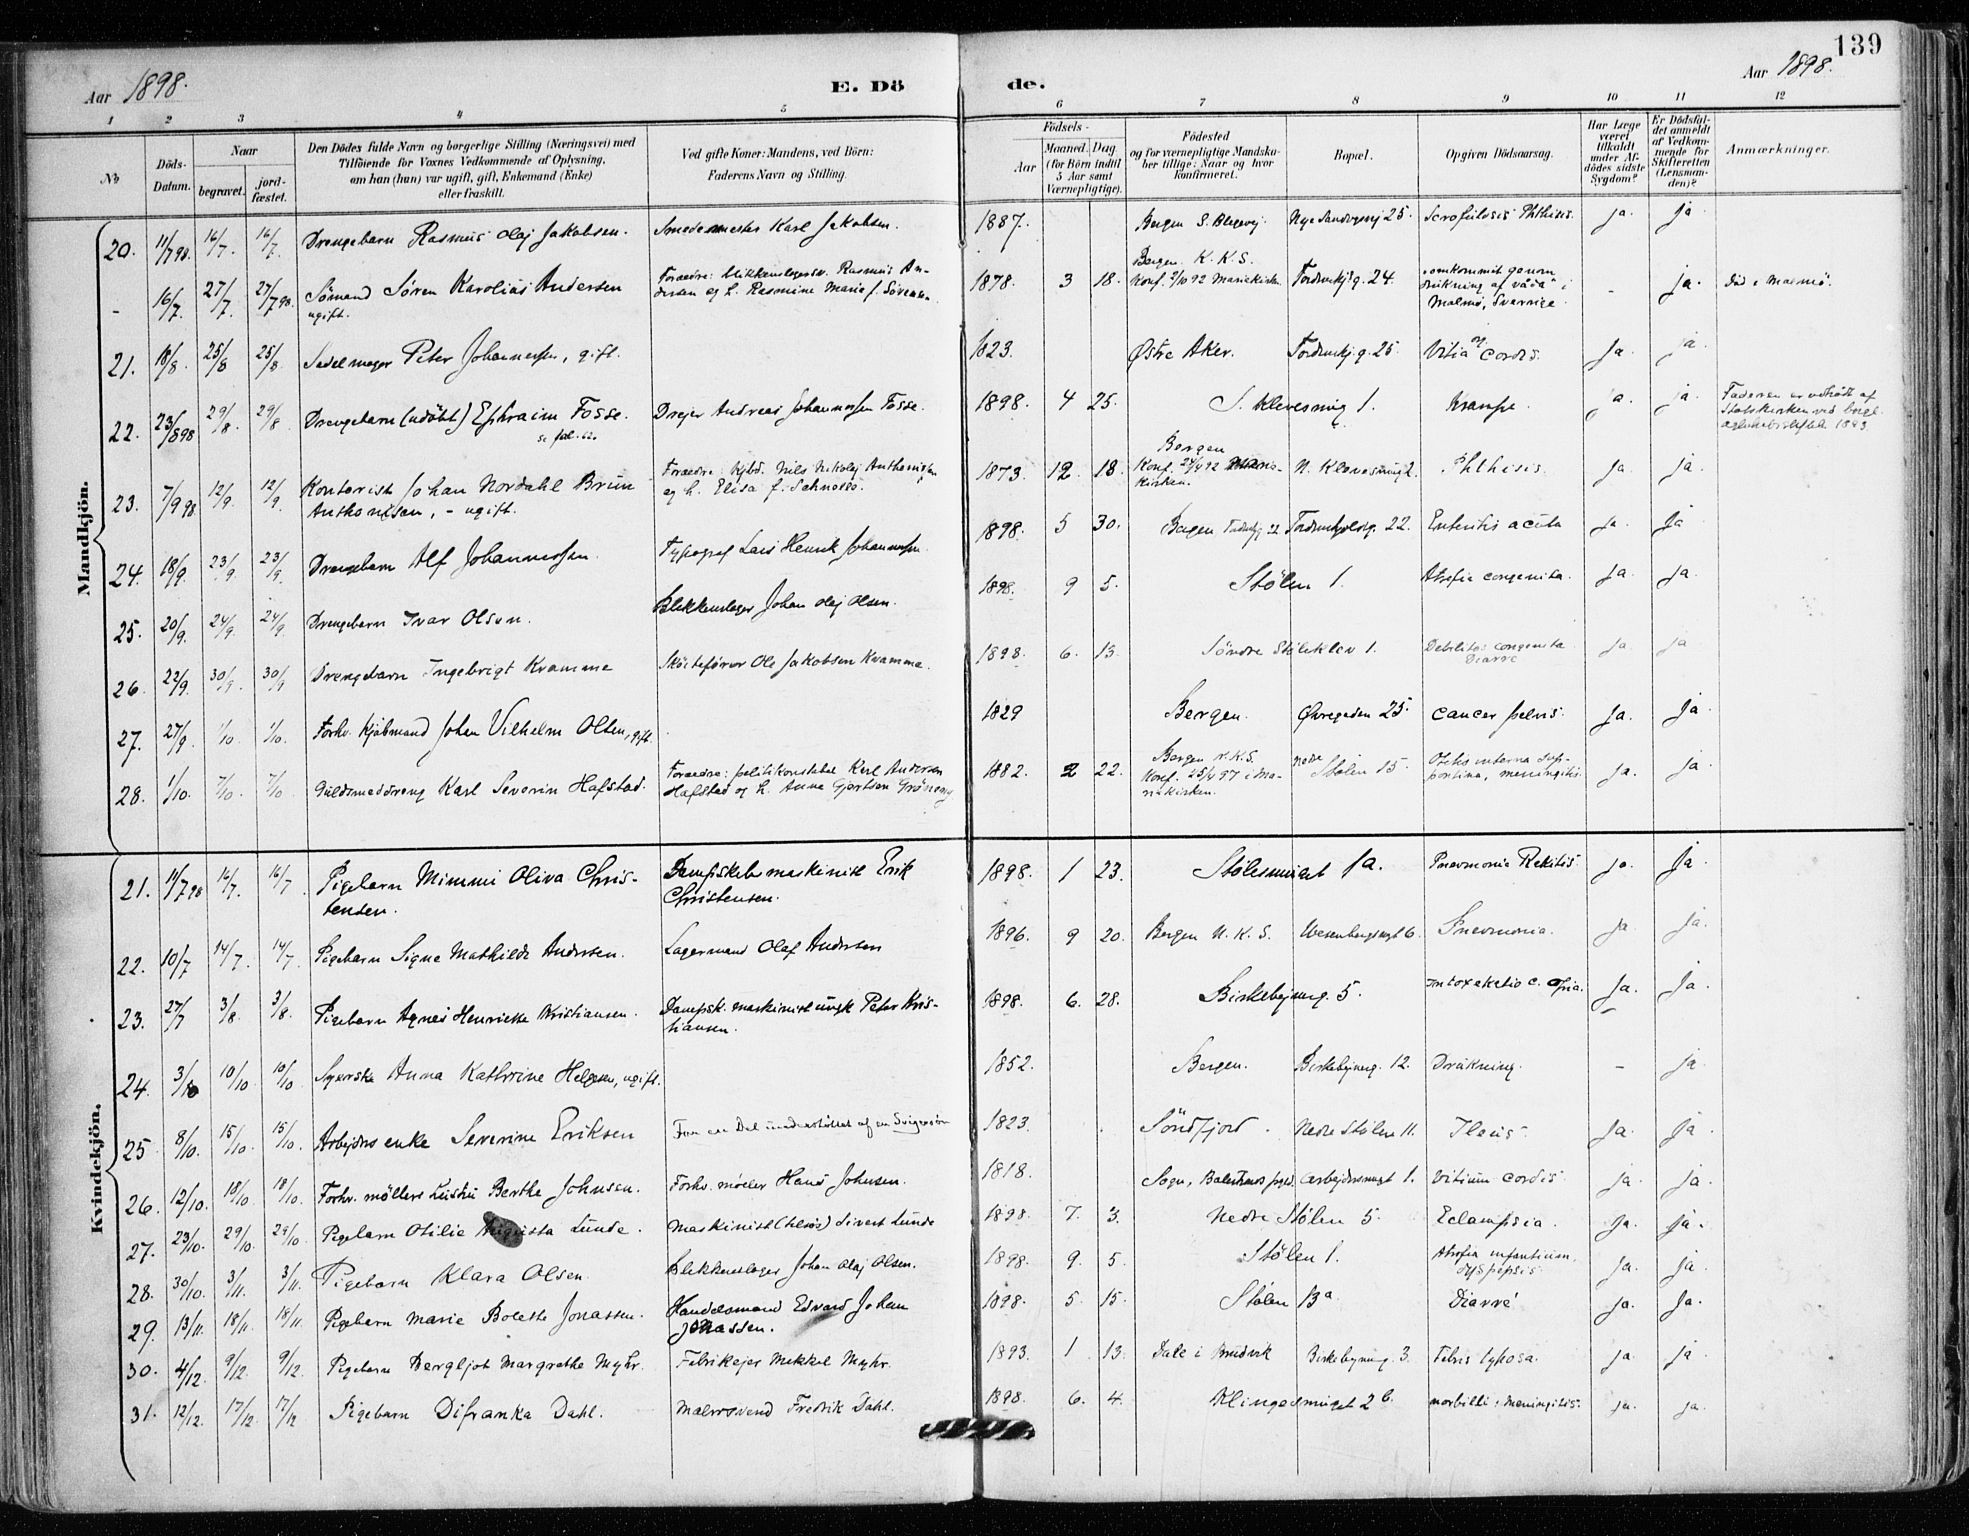 139
Aar 1898. E. Dö de. Aar 1898.
1 2 3 4 5 6 7 8 9 10 11 12
No Döds-Datum. Naar begravet. jord-fæstet. Den Dödes fulde Navn og borgerlige Stilling (Næringsvei) med Tilföiende for Voxnes Vedkommende af Oplysning, om han (hun) var ugift, gift, Enkemand (Enke) eller fraskilt. Ved gifte Koner: Mandens, ved Börn: Faderens Navn og Stilling. Födsels- Aar Maaned. Dag. (for Börn indtil 5 Aar samt Værnepligtige). Födested og for værnepligtige Mandska-ber tillige: Naar og hvor konfirmeret. Bopæl. Opgiven Dödsaarsag. Har Læge været tilkaldt under Af-dödes sidste Sygdom? Er Dödsfal-det anmeldt af Vedkom-mende for Skifteretten (Lensman-den)? Anmærkninger.
Mandkjön.
20. 11/7 98 16/7. 16/7. Drengebarn Rasmus Olaj Jakobsen. Smedemester Karl Jakobsen. 1887. Bergen S. Blegevej Nye Sandvigsvej 25. Scrofulosis Phthisis. ja. ja
- 16/7. 27/7. 27/7 98. Sömand Sören Karolius Andersen ugift. Forældre: blikkenslagersv. Rasmus An-dersen og h. Rasmine Marie f. Sörensen. 1878. 3 18. Bergen K. K. S. Konf. 2/10 92 Mariekirken. Tordenskj. g. 24. "omkommit genom drukning af våda" i Malmö, Sverrige. - ja. Död i Malmö.
21. 18/8. 25/8 25/8. Sadelmager Peter Johannessen, gift. 1823. Østre Aker. Tordenskj. g. 25. Vitia cordis. Ja. ja.
22. 23/8 98 29/8. 29/8. Drengebarn (udöbt) Ephraim Fosse. se fol. 62. Drejer Andreas Johannessen Fosse. 1898. 4 25. S. Klevesmug 1. Krampe. ja. ja. Faderen er udtrådt af Statskirken ved 1893
23. 7/9 98 12/9. 12/9. Kontorist Johan Nordahl Brun Anthonisen, - ugift. Forældre: Kjbd. Nils Nikolaj Anthonisen og h. Elisa f. 1873. 12 18. Bergen Konf. 24/4 92 kirken. N. Klevesmug 2. Phthisis. ja. ja.
24. 18/9. 23/9. 23/9. Drengebarn Alf Johannessen. Typograf Lars Henrik Johannessen. 1898. 5 30. Bergen 22 22. Enteritis acuta ja. Ja
25. 20/9. 24/9. 24/9. Drengebarn Ivar Olsen. Blikkenslager Johan Olaj Olsen. 1898. 9 5. Stölen 1. Atrofia congenita. ja. ja.
26. 22/9. 30/9. 30/9 Drengebarn Ingebrigt Kvamme Sköitefører Ole Jakobsen Kvamme. 1898. 6. 13. Söndre Stöleklev 1. Debilitas congenita Diarre ja ja
27. 27/9. 1/10. 1/10. Forhv. Kjöbmand Johan Vilhelm Olsen, gift. 1829 Bergen. Øvregaden 25. Cancer pelvis. ja. ja.
28. 1/10. 7/10. 7/10. Guldsmeddreng Karl Severin Hafstad. Forældre: politikonstabel Karl Andersen Hafstad og h. Anna Gjertsen 1882. 2 22. Bergen N.K.S. Konf. 25/4 97 i Ma-riekirken. nedre Stölen 15. Otitis interna sup-, meningitis. ja. ja.
Kvindekjön.
21. 11/7 98 16/7. 16/7 Pigebarn Mimmi Oliva Chris-tensen. Dampskibsmaskinist Erik Christensen. 1898. 1 23. Stölesmuget 1a. Pnevmonia Rekitis. ja. Ja
22. 10/7 14/7. 14/7. Pigebarn Signe Mathilde Andersen. Lagermand Olaf Andersen 1896. 9 20. Bergen N. K. S. Wesenbergsmgt 6. Pnevmonia. ja ja.
23. 27/7 3/8 3/8. Pigebarn Agnes Henriette Kristiansen. Dampsk. maskinist Peter Kris-tiansen. 1898. 6. 28. Birkebejnerg. 5. Ja. ja.
24. 3/10 10/10 10/10 Syerske Anna Kathrine Helgesen, ugift. 1852. Bergen. Birkebejnerg. 12. Drukning. - ja.
25. 8/10. 15/10. 15/10. Arbejders enke Severine Eriksen For en Del understöttet af en Svigersön 1823. Söndfjord. Nedre Stölen 11. Ileus. Ja. ja.
26. 12/10. 18/10. 18/10. Forhv. möllers hustru Berthe Johnsen. Forhv. möller Hans Johnsen. 1818. Sogn, Balestrand prgd. Arbejdersmugt 1. Vitium cordis. ja. ja.
27. 23/10. 29/10. 29/10. Pigebarn Otilie Augusta Lunde. Maskinist Sivert Lunde 1898. 7. 3. Nedre Stölen 5. Eclampsia. ja. ja.
28. 30/10. 3/11. 3/11. Pigebarn Klara Olsen. Blikkenslager Johan Olaj Olsen. 1898. 9. 5. Stölen 1. Atrofia infantium, dyspepsis. ja. ja.
29. 13/11. 18/11. 18/11. Pigebarn Marie Bolette Jonassen. Handelsmand Edvard Johan Jonassen. 1898. 5. 15. Stölen 13a. Diarré ja. Ja.
30. 4/12. 9/12. 9/12. Pigebarn Bergljot Margrethe Myhr. Fabrikejer Mikkel Myhr. 1893. 1. 13. Dale i Bruvik Birkebejnerg. 3. Febris typhosa. ja. ja
31. 12/12. 17/12. 17/12 Pigebarn Difranka Dahl. Malersvend Fredrik Dahl. 1898. 6. 4. Klingesmuget 2b. morbilli, meningitis. ja. ja.